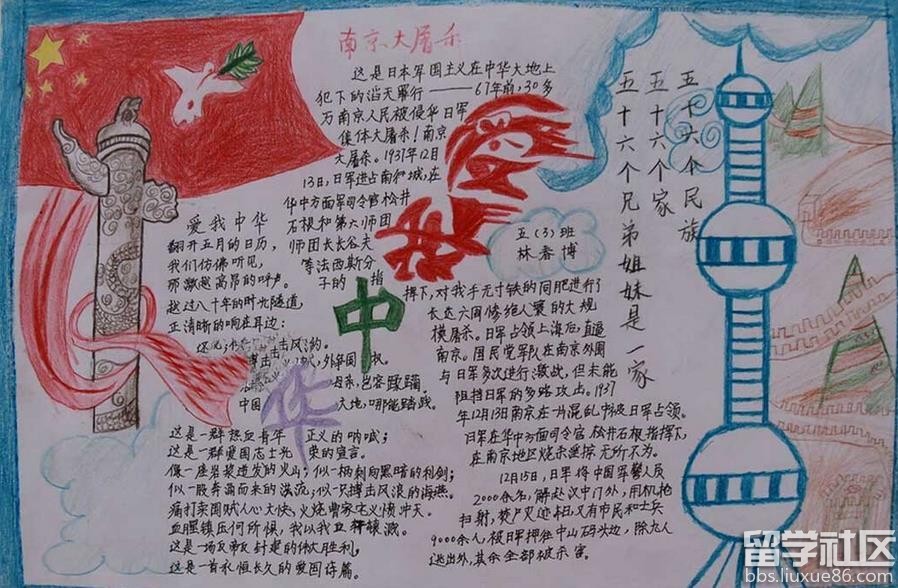 南京大屠杀
这是日本军国主义在中华大地上
犯下的滔天罪行——67年前,30多
万南京人民被侵华日军
集体大屠杀!南京
大屠杀。1937年12月
13日,日军进占南京城,在
华中方面军司令官松井
石根和第六师团
师团长长谷夫
等法西斯分
子的指
挥下,对我手无寸铁的同胞进行了
长达六周惨绝人寰的大规
模屠杀。日军占领上海后,直逼
南京。国民党军队在南京外围
与日军多次进行激战,但未能
阻挡日军的多路攻击。1937
年12月13日南京在一片混乱中被日军占领。
日军在华中方面司令官松井石根指挥下,
在南京地区烧杀淫掠无所不为。
12月15日,日军将中国军警人员
2000余名,解赴汉中门外,用机枪
扫射,焚尸灭迹。本日,又有市民和士兵
9000余人,被日军押往中山码头边,除九人
逃出外,其余全部被杀害。
爱我中华
翻开五月的日历,
我们仿佛听见,
那激越高昂的呼声
越过八十年的时光隧道,
正清晰的响在耳边:
击风豹
中国 大地,哪能踏践。
这是一群热血青年 正义的呐喊;
这是一群爱国志士光 荣的宣言。
像一座岩浆迸发的火山;似一柄刺向黑暗的利剑;
似一股奔涌而来的洪流;似一只搏击风浪的海燕。
痛打卖国贼人心大快,火烧曹家宅义愤冲天。
血腥镇压何所惧,我以我
这是一场反帝反封建的伟大胜利,
这是一首永恒长久的爱国诗篇。
我
爱
中
华
五(3)班
林春博
五十六个民族
五十六个家
五十六个兄弟姐妹是一家
留学社区
bbs.liuxue86.com